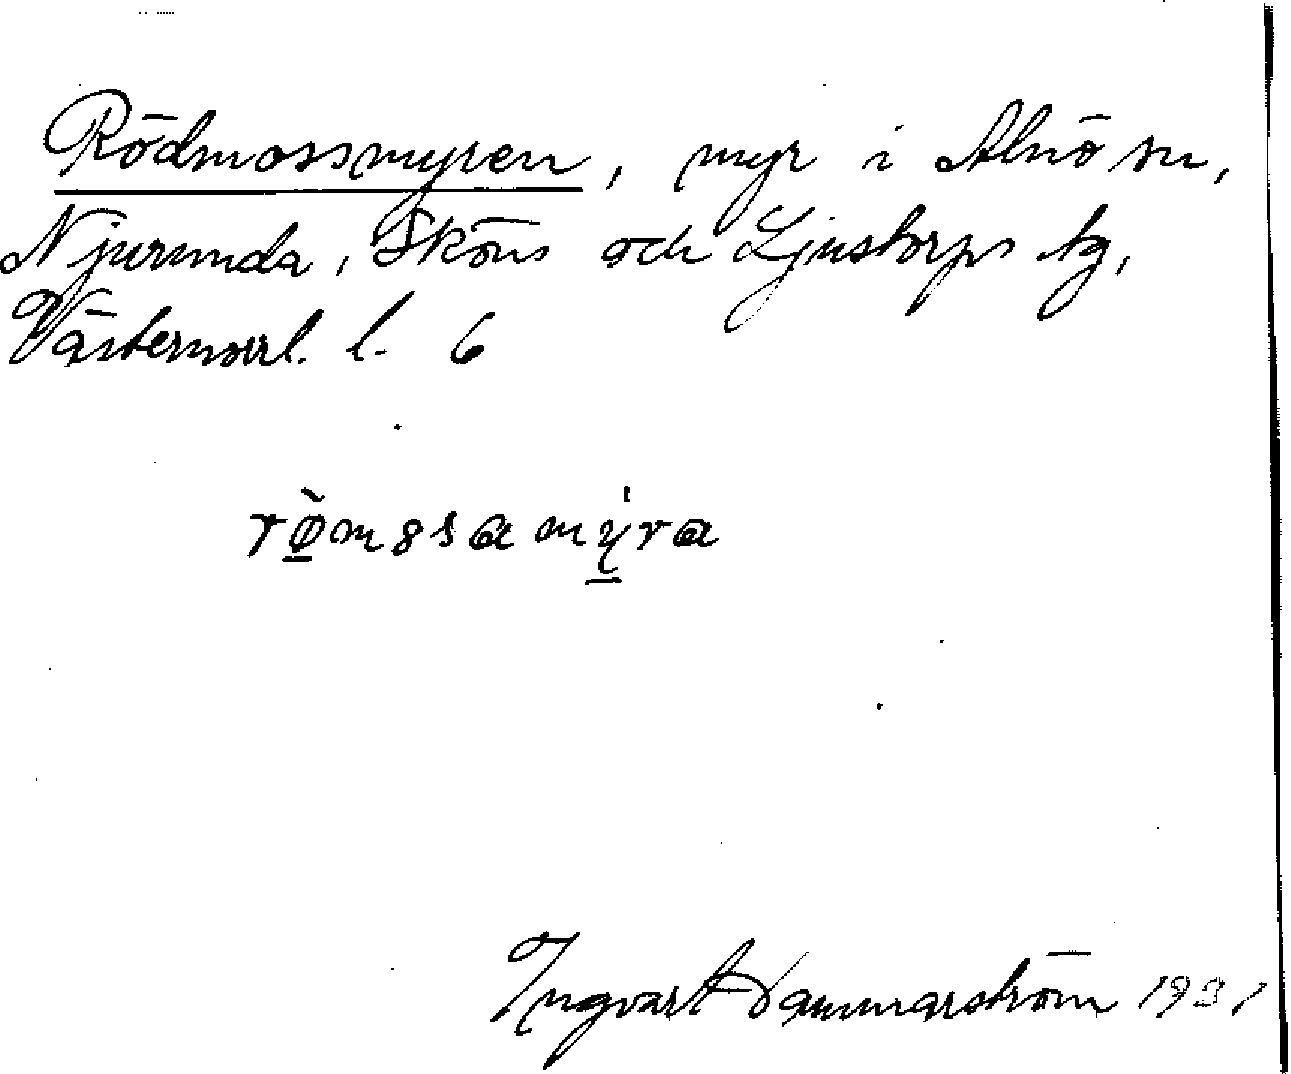 Rödmossmyren, myr i Alnö sn,
Njurunda, Sköns och Ljustorps tg,
Västernorrl. l. 6
Ingvar Hammarström 1931